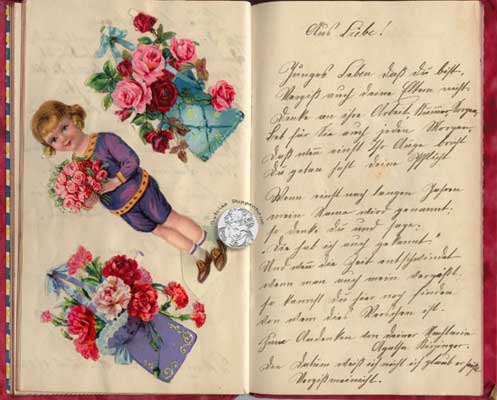 Aus Liebe!
Junges Leben daß du bist.
Vergiß auch deine Eltern nicht.
Denke an ihre Arbeit Kummer Sorgen,
Leb für Sie auch jeden Morgen,
Daß wenn einst Ihr Auge bricht
Du getan hast deine Pflicht.
Wenn einst nach langen Jahren
mein Name wird genannt:
so denke du und sage:
"Die hab ich auch gekannt."
Und wenn die Zeit entschwindet
wenn man auch mein vergißt.
so kannst du hier noch finden
von wem dies Verschen ist.
Zum Andenken von deiner
Agatha
Den Datum weiß ich nicht ich glaub er heißt
Vergißmeinnicht.